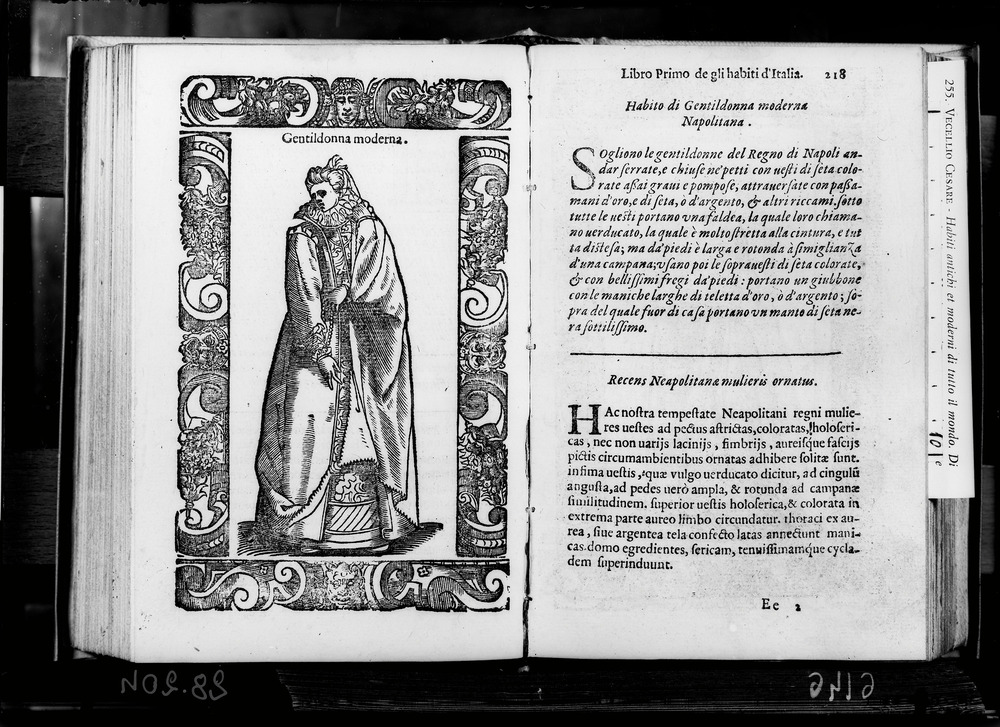 Gentildonna moderna.
Libro Primo de gli habiti d'Italia. 218
Habito di Gentildonna moderna
Napolitana.
SOgliono le gentildonne del Regno di Napoli an-
dar ſerrate, e chiuſe ne'petti con ueſti di ſeta colo-
rate aſſai graui e pompoſe, attrauerſate con paſſa-
mani d'oro, e di ſeta, ò d'argento, & altri riccami. ſotto
tutte le ueſti portano vna faldea, la quale loro chiama-
no uerducato, la quale è molto ſtretta alla cintura, e tut
ta diſteſa; ma da'piedi è larga e rotonda à ſimiglianza
d'una campana; vſano poi le ſopraueſti di ſeta colorate,
& con belliſſimi fregi da'piedi: portano un giubbone
con le maniche larghe di teletta d'oro, ò d'argento; ſo-
pra del quale fuor di caſa portano vn manto di ſeta ne-
ra ſottiliſſimo.
Recens Neapolitanæ mulieris ornatus.
HAc noſtra tempeſtate Neapolitani regni mulie-
res ueſtes ad pectus aſtrictas, coloratas, holoſeri-
cas, nec non uarijs lacinijs, fimbrijs, aureiſque faſcijs
pictis circumambientibus ornatas adhibere ſolitæ ſunt.
infima ueſtis, quæ vulgo uerducato dicitur, ad cingulũ
anguſta, ad pedes uerò ampla, & rotunda ad campanæ
ſimilitudinem. ſuperior ueſtis holoſerica, & colorata in
extrema parte aureo limbo circundatur. thoraci ex au-
rea, ſiue argentea tela confecto latas annectunt mani-
cas. domo egredientes, ſericam, tenuiſſimamque cycla-
dem ſuperinduunt.
Ee 2
255. VECELLIO CESARE - Habiti antichi et moderni di tutto il mondo. Di
10 e
28.204
6146